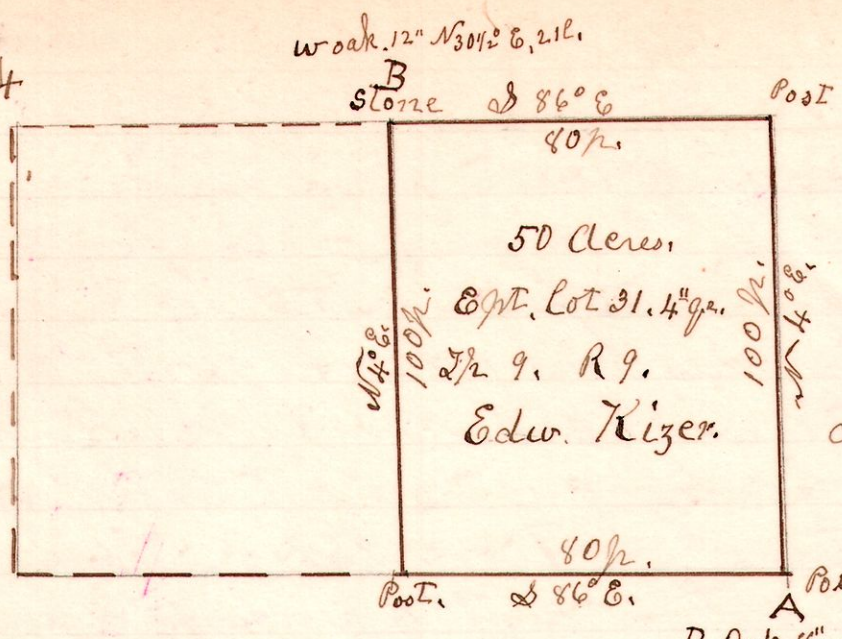 W oak. 12" N30½° E, 21l.
4
B
Stone S 86° E Post
80p.
50 Acres.
E pt. Lot 31. 4"qr.
Tp 9. R 9.
Edw. Kizer.
N 4° E.
100p.
100p.
N 4° E.
80p.
Post. S 86° E.
A